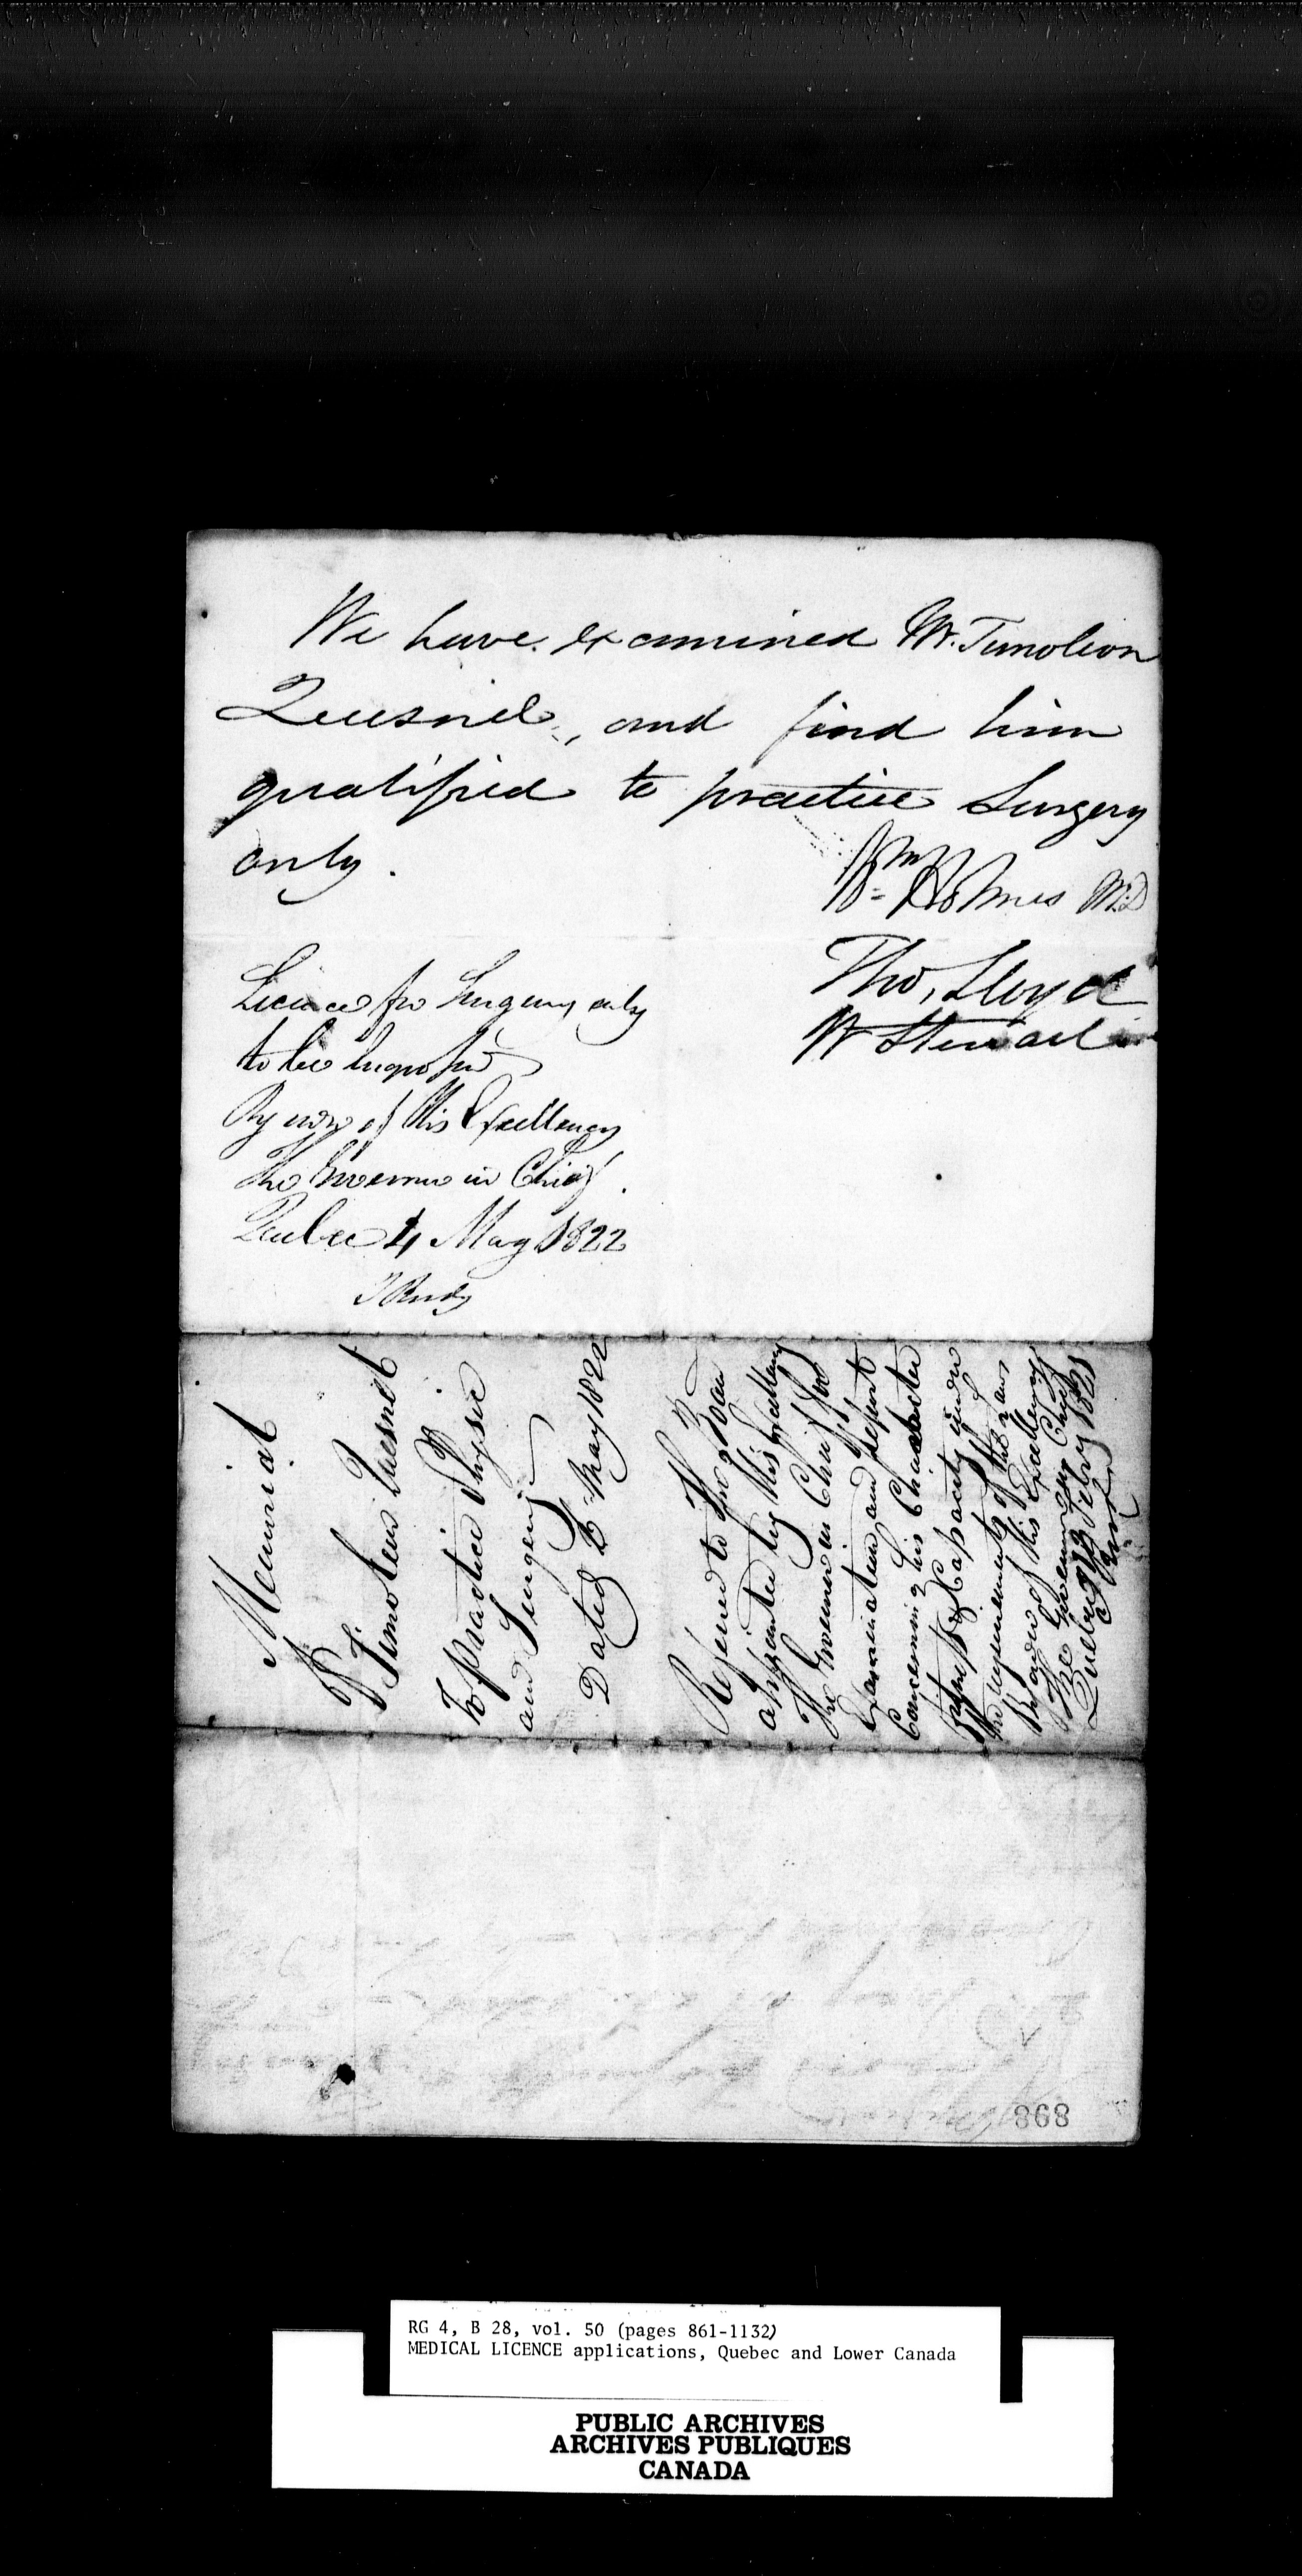 We have examined Mr. Timoleon
Quesnel, and find him
qualified to practice Surgery
only.
Wm Holmes M.D
Tho, Lloyd
W Stewart
Licence for Surgery only
to be engrossed
By order of His Excellency
The Governor in Chief.
Quebec 4 May 1822
Memorial
Timoleon Quesnel
To practice Physic
and Surgery
Dated May 1822
Referred to the Board
appointed by His Excellency
The Governor in Chief for
Examination and report
Concerning his Character
fitness & Capacity under
the requirements of the Law
By order of His Excellency
The Governor in Chief
Quebec
868
RG 4, B 28, vol. 50 (pages 861-1132)
MEDICAL LICENCE applications, Quebec and Lower Canada
PUBLIC ARCHIVES
ARCHIVES PUBLIQUES
CANADA